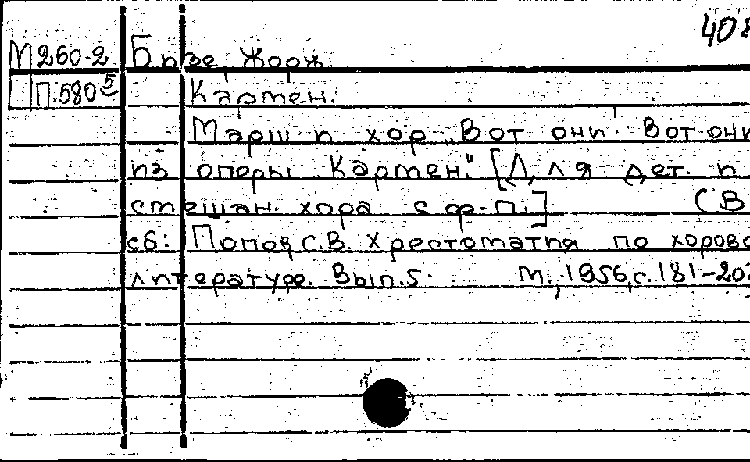 408
М260-2 Бизе, Жорж.
П.580⁵ Кармен.
Марш и хор „Вот они! Вот они
из оперы Кармен." [Для дет. и
смешан. хора с ф-п.] (В
сб: Попов С.В. Хрестоматия по хорово
литературе. Вып.5. М., 1956, с.181-20